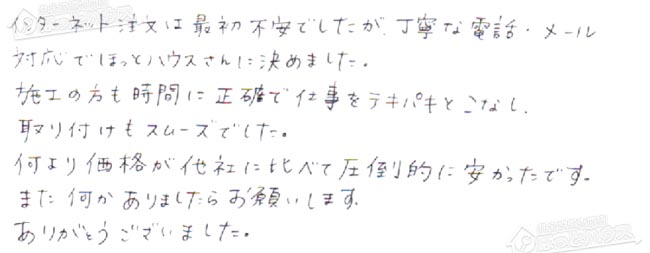 インターネット注文は最初不安でしたが、丁寧な電話・メール
対応でほっとハウスさんに決めました。
施工の方も時間に正確で仕事をテキパキとこなし、
取り付けもスムーズでした。
何より価格が他社に比べて圧倒的に安かったです。
また何かありましたらお願いします。
ありがとうございました。